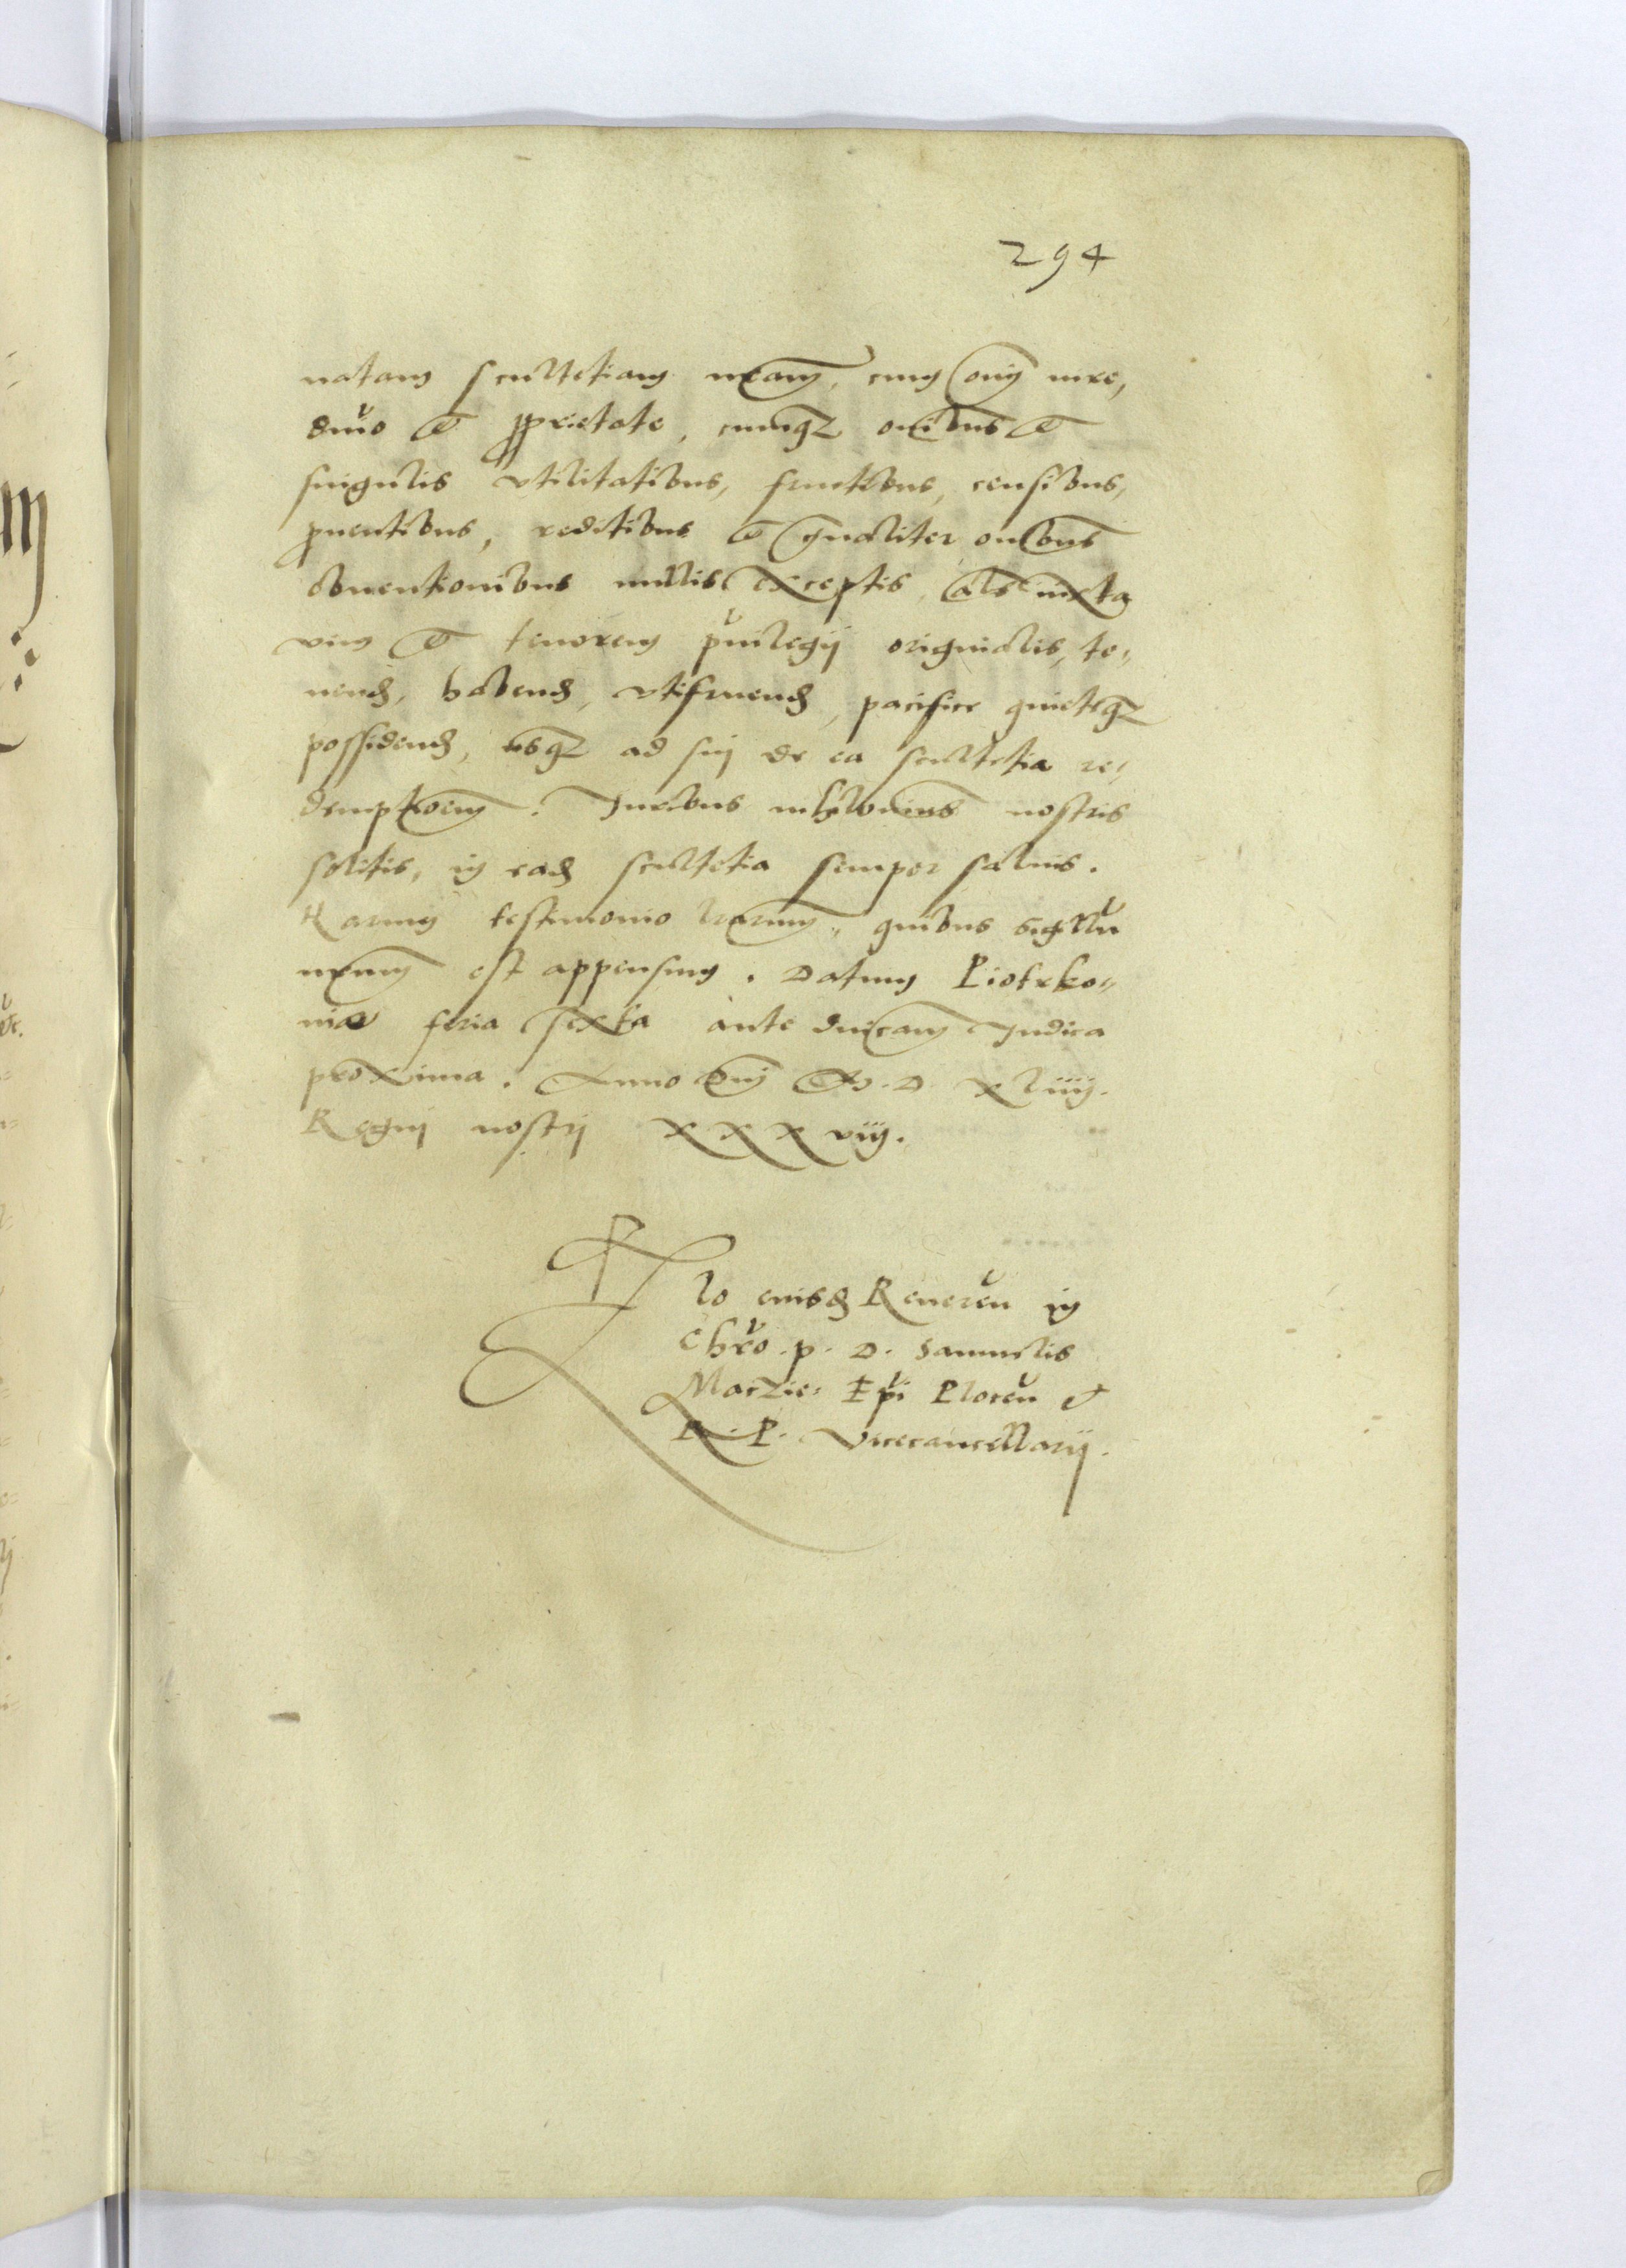 294
natam scultetiam nr̃am, cum om̃i iure,
dnĩo et proprietate, cumq₃ om̃ibus et
singulis vtilitatibus, fructibus, censibus,
prouentibus, reditibus et gn̄aliter om̃ibus
obuentionibus nullis exceptis, als iuxta
vim et tenorem priuilegij originalis, te„
nend, habend, vtifruend, pacifice quieteq₃
possidend, vsq₃ ad suj de ea scultetia re„
demptioem̃. Iuribus nihilominus nostris
solitis, in ead scultetia semper saluis.
Harum testimonio lr̃arum, quibus sigillũ
nr̃um est appensum. Datum Piotrko„
niæ feria sexta ante dnĩcam Iudica
proxima. Anno Dnĩ M. D. xliiij.
Regnj nostrj xxxviij.
Rlo eiusd Reueren̄ in
Chrō. p. D. Samuelis
Maczie: Epĩ Plocen̄ et
R. P. Vicecancellarij.